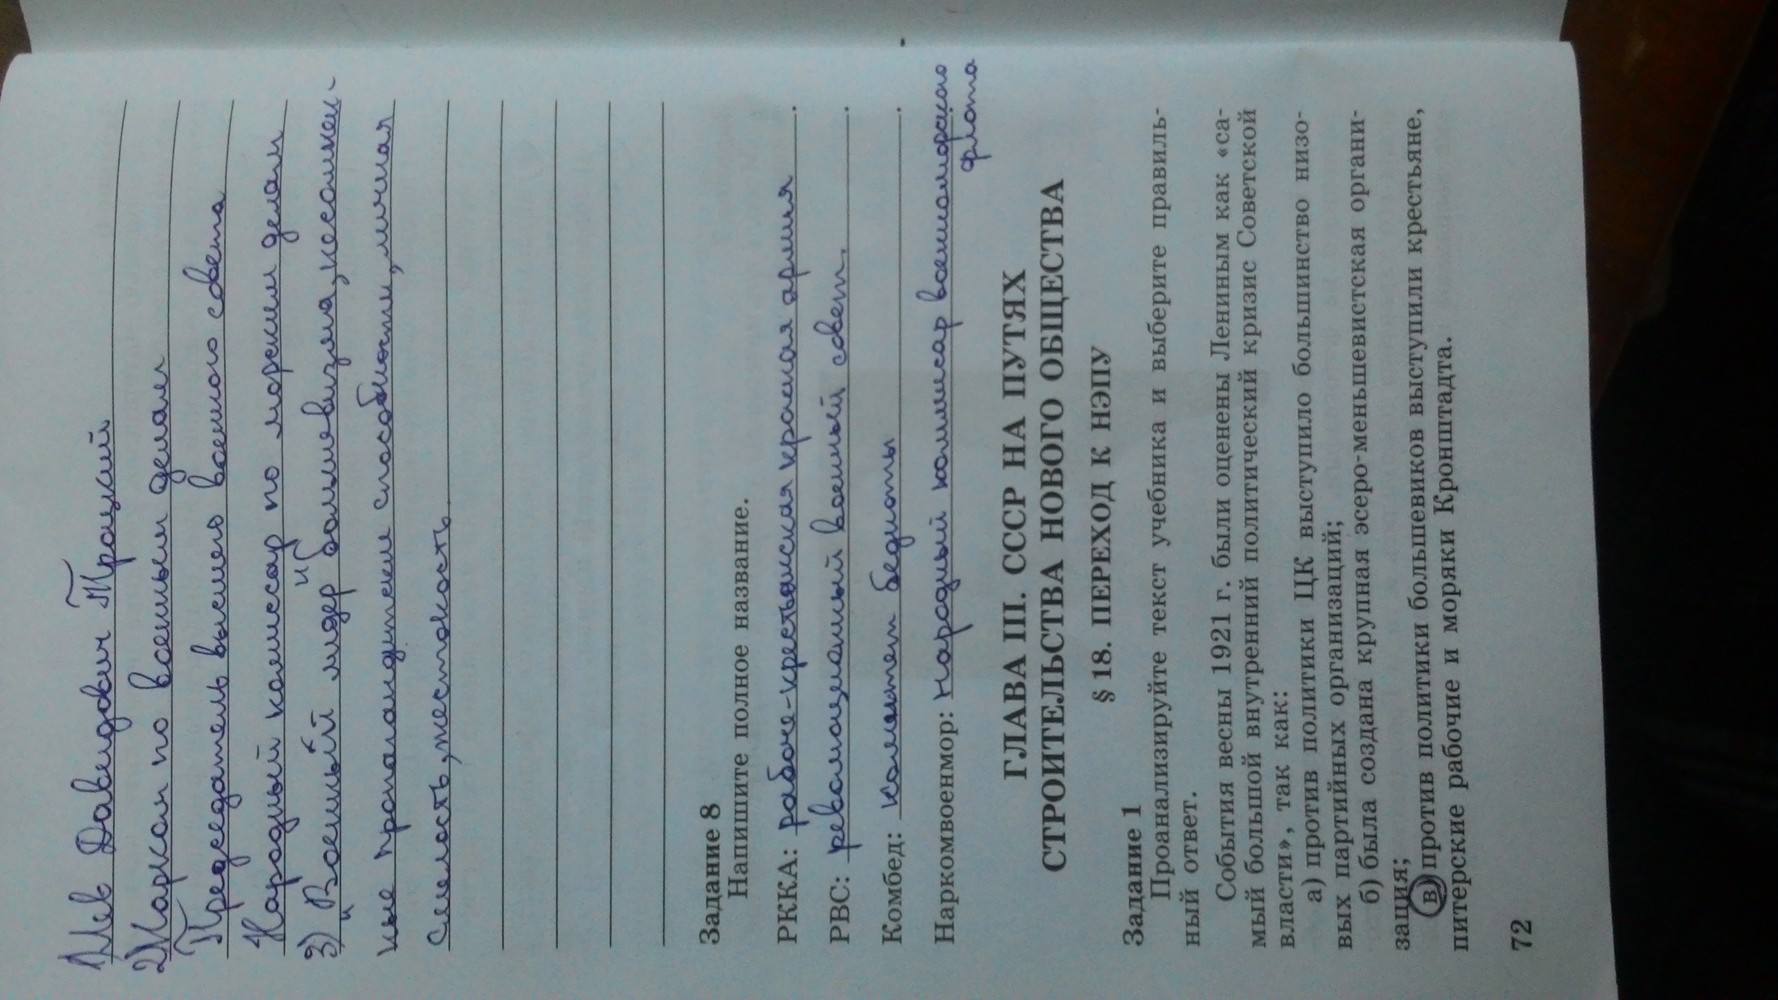 1) Лев Давидович Троцкий
2) Нарком по военным делам
Председатель высшего военного совета
Народный комиссар по морским делам
3) Военный лидер большевизма, несомнен-
и
ные пропагандистские способности, личная
смелость, жестокость
Задание 8
Напишите полное название.
РККА: рабоче-крестьянская красная армия.
РВС: революционный военный совет.
Комбед: комитет бедноты.
Наркомвоенмор: народный комиссар военноморского
флота
ГЛАВА III. СССР НА ПУТЯХ
СТРОИТЕЛЬСТВА НОВОГО ОБЩЕСТВА
§ 18. ПЕРЕХОД К НЭПУ
Задание 1
Проанализируйте текст учебника и выберите правиль-
ный ответ.
События весны 1921 г. были оценены Лениным как «са-
мый большой внутренний политический кризис Советской
власти», так как:
а) против политики ЦК выступило большинство низо-
вых партийных организаций;
б) была создана крупная эсеро-меньшевистская органи-
зация;
в) против политики большевиков выступили крестьяне,
питерские рабочие и моряки Кронштадта.
72